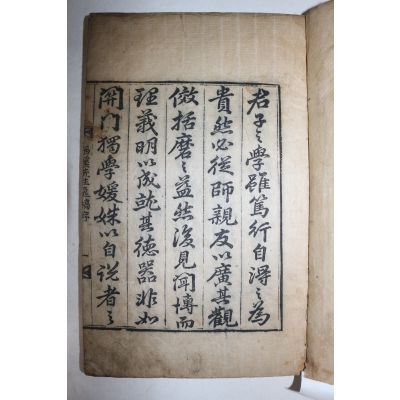 君子之學雖篤行自得之爲
貴然必從師親友以廣其觀
儆括磨之益然後見洽博而
理義明以成就其德器非如
閉门獨學媛姝以自説者之
先生遺稿序
一